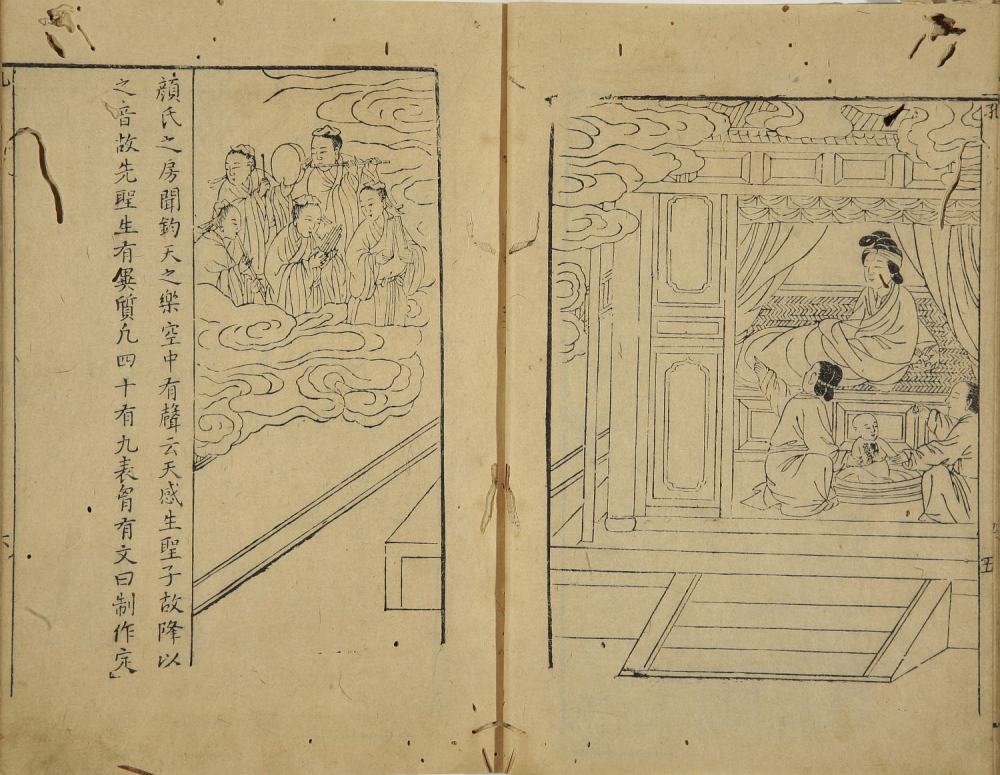 孔
五
顏氏之房聞鈞天之樂空中有聲云天感生聖子故降以
之音故先聖生有異質凡四十有九表胷有文曰制作定
六